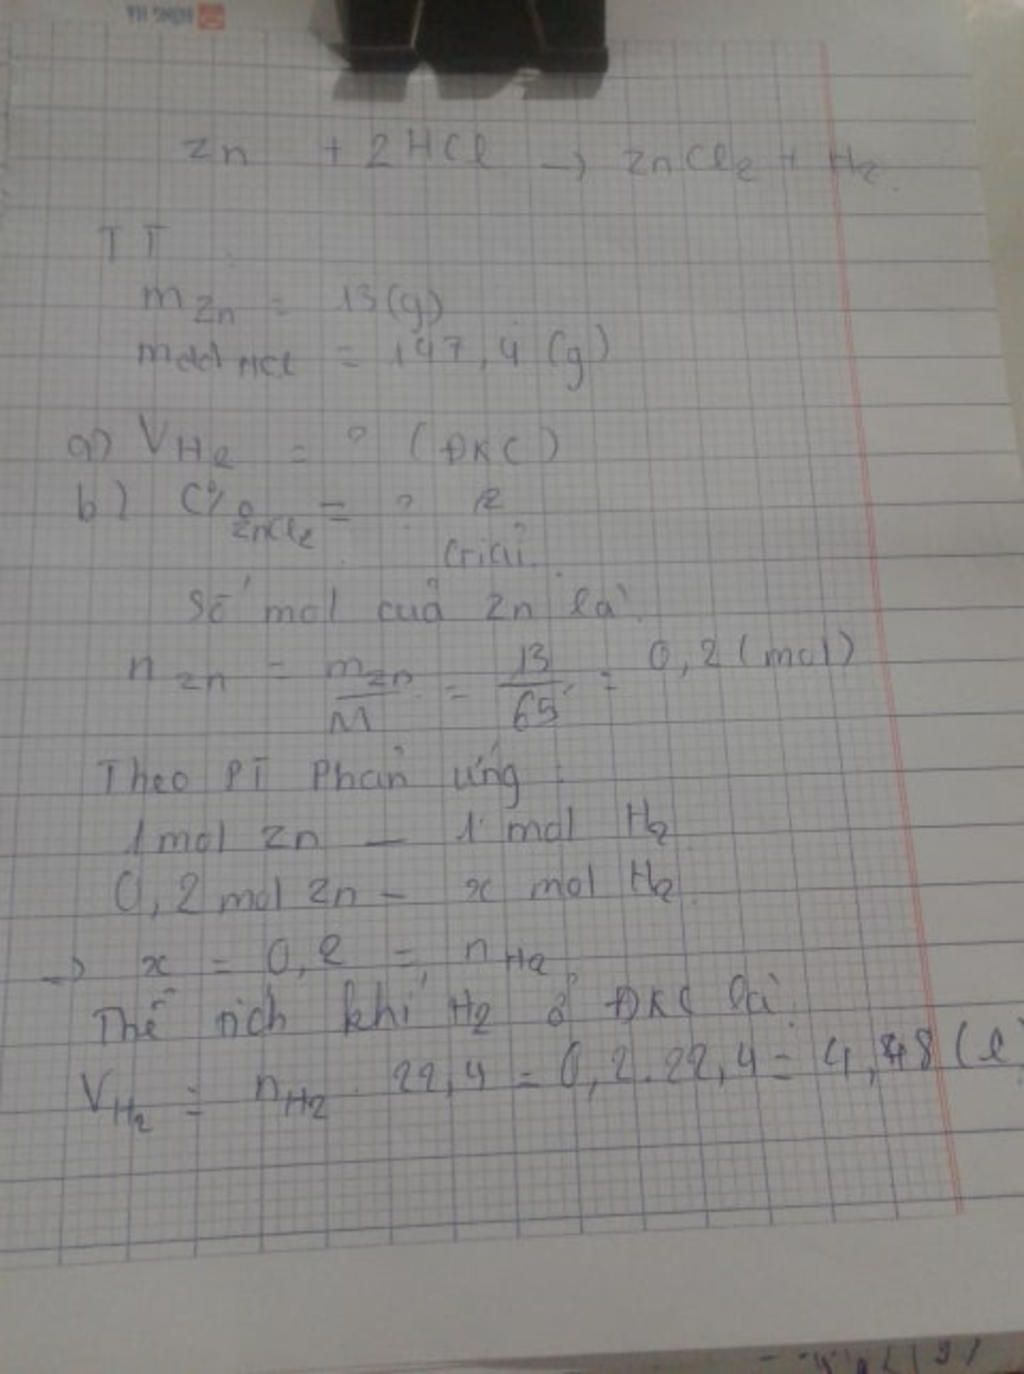 HONG HA
Zn + 2HCl → ZnCl₂ + H₂.
TT
m Zn = 13 (g)
mdd HCl = 147,4 (g)
a) V H₂ = ? (ĐKC)
b) C% ZnCl₂ = ?
Giải
Số mol của Zn là
n Zn = m Zn / M = 13 / 65 = 0,2 (mol)
Theo PT Phản ứng :
1 mol Zn — 1 mol H₂
0,2 mol Zn — x mol H₂
→ x = 0,2 = n H₂
Thể tích khí H₂ ở ĐKC là
V H₂ = n H₂ . 22,4 = 0,2 . 22,4 = 4,48 (l